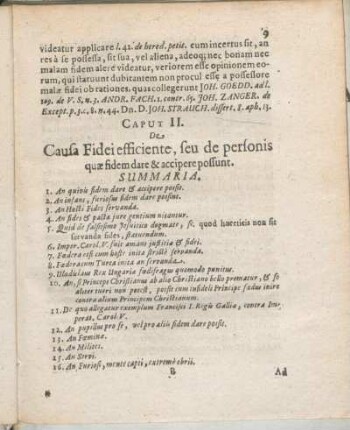 9
videatur applicare l. 42. de hered. petit. cum incertus sit, an
res à se possessa, sit sua, vel aliena, adeoq; nec bonam nec
malam fidem alere videatur, veriorem esse opinionem eo-
rum, qui statuunt dubitantem non procul esse a possessore
malæ fidei ob rationes, quas collegerunt JOH. GOEDD. ad l.
109. de V. S. n. 3. ANDR. FACH. 1. contr. 65. JOH. ZANGER. de
Except. p. 3. c. 8. n. 44. DN. D. JOH. STRAUCH. dissert. 8. aph. 13.
CAPUT II.
De
Causa Fidei efficiente, seu de personis
quæ fidem dare & accipere possunt.
SUMMARIA.
1. An quivis fidem dare & accipere possit.
2. An infans, furiosus fidem dare possint.
3. An Hosti Fides servanda.
4. An fides & pacta jure gentium nitantur.
5. Quid de falsissimo Jesuitico dogmate, sc. quod hæreticis non sit
servanda fides, statuendum.
6. Imper. Carol. V. fuit amans justitiæ & fidei.
7. Fœdera etsi cum hoste inita stricte servanda.
8. Fœdera cum Turca inita an servanda.
9. Uladislaus Rex Ungariæ fœdifragus quomodo punitus.
10. An, si Princeps Christianus ab alio Christiano bello prematur, & se
aliter tueri non possit, possit cum infideli Principe fœdus inire
contra alium Principem Christianum.
11. De quo allegatur exemplum Francisci I. Regis Galliæ, contra Im-
perat. Carol. V.
12. An pupillus pro se, vel pro aliis fidem dare possit.
13. An Fœminæ.
14. An Milites.
15. An Servi.
16. An Furiosi, mente capti, extreme ebrii.
B
Ad